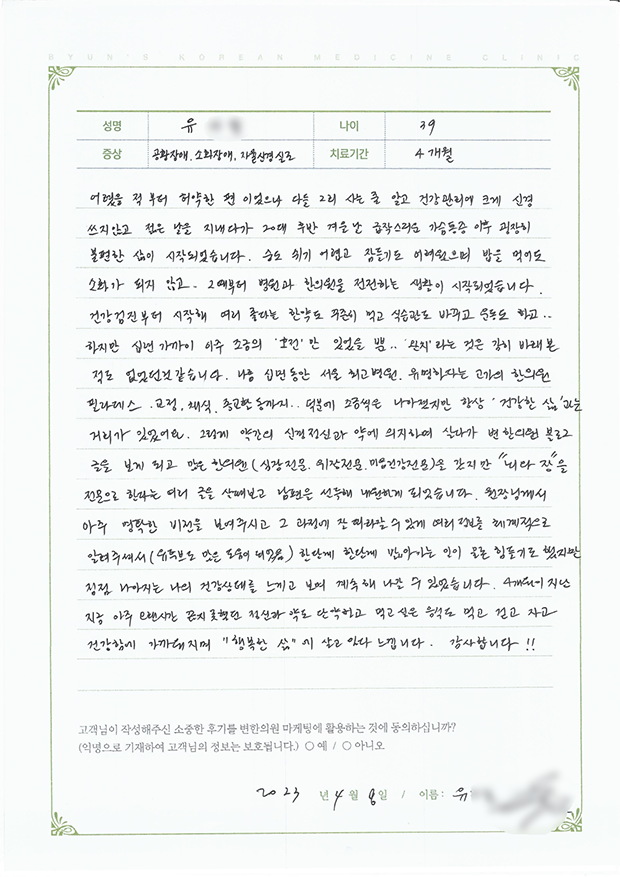 BYUN'S KOREAN MEDICINE CLINIC
성명 유 나이 39
증상 공황장애. 소화장애. 자율신경실조 치료기간 4개월
어렸을 적부터 허약한 편 이었으나 다들 그리 사는 줄 알고 건강관리에 크게 신경
쓰지않고 젊은 날을 지내다가 20대 후반 겨울 난 급작스러운 가슴통증 이후 굉장히
불편한 삶이 시작되었습니다. 숨도 쉬기 어렵고 잠들기도 어려웠으며 밥은 먹어도
소화가 되지 않고.. 그때부터 병원과 한의원을 전전하는 생활이 시작되었습니다.
건강검진부터 시작해 여러 좋다는 한약도 꾸준히 먹고 식습관도 바꾸고 운동도 하고..
하지만 십년 가까이 아주 조금의 '호전'만 있었을 뿐.. '완치'라는 것은 감히 바래본
적도 없었던것 같습니다. 나름 십년동안 서울 최고병원. 유명하다는 고가의 한의원
필라테스. 교정. 채식. 종교활동까지.. 덕분에 조금씩은 나아졌지만 항상 '건강한 삶'과는
거리가 있었어요. 그렇게 약간의 신경정신과 약에 의지하며 살다가 변한의원 블로그
글을 보게 되고 많은 한의원(심장전문. 위장전문. 마음건강전문)을 갔지만 "뇌다장"을
전문으로 한다는 여러 글을 살펴보고 남편은 선뜻 내원하게 되었습니다. 원장님께서
아주 명확한 비전을 보여주시고 그 과정에 잘 따라갈 수 있게 여러정보를 체계적으로
알려주셔서(유튜브도 많은 도움이 되었음) 한단계 한단계 밟아가는 일이 물론 힘들기도 했지만
점점 나아지는 나의 건강상태를 느끼고 보며 계속해 나갈 수 있었습니다. 4개월이 지난
지금 아주 오랜시간 끊지못했던 정신과 약도 단약하고 먹고싶은 음식도 먹고 걷고 자고
건강함에 가까워지며 "행복한 삶"에 살고 있다 느낍니다. 감사합니다!!
고객님이 작성해주신 소중한 후기를 변한의원 마케팅에 활용하는 것에 동의하십니까?
(익명으로 기재하여 고객님의 정보는 보호됩니다.) ○ 예 / ○ 아니오
2023 년 4 월 8 일 / 이름 : 유